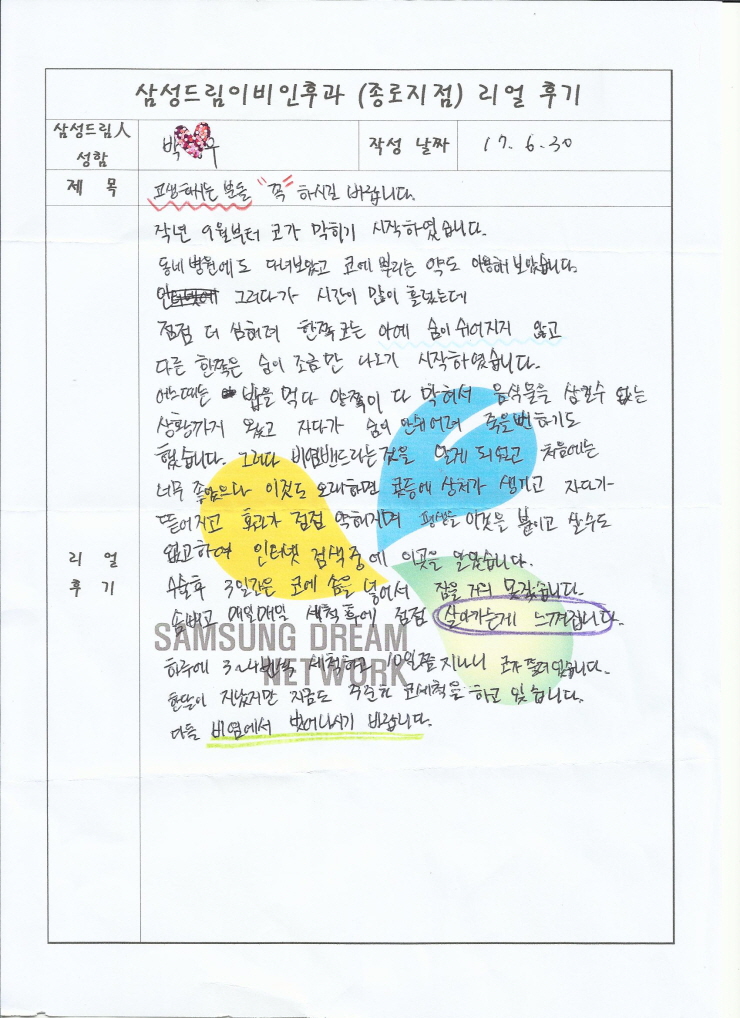 삼성드림이비인후과 (종로지점) 리얼 후기
삼성드림人
성함
박 우
작성 날짜
17. 6. 30
제 목
고생하시는 분들 "꼭" 하시길 바랍니다.
리 얼
후 기
작년 9월부터 코가 막히기 시작하였습니다.
동네 병원에도 다녀보았고 코에 뿌리는 약도 이용해 보았습니다.
그러다가 시간이 많이 흘렀는데
점점 더 심해져 한쪽 코는 아예 숨이 쉬어지지 않고
다른 한쪽은 숨이 조금만 나오기 시작하였습니다.
어느때는 밥을 먹다 양쪽이 다 막혀서 음식물을 삼킬수 없는
상황까지 왔었고 자다가 숨이 안쉬어져 죽을뻔하기도
했습니다. 그러다 비염밴드라는것을 알게 되었고 처음에는
너무 좋았으나 이것도 오래하면 콧등에 상처가 생기고 자다가
뜯어지고 효과가 점점 약해지며 평생을 이것을 붙이고 살수도
없고하여 인터넷 검색중에 이곳을 알았습니다.
수술후 3일간은 코에 솜을 넣어서 잠을 거의 못잤습니다.
솜빼고 매일매일 세척후에 점점 살아가는게 느껴집니다.
SAMSUNG DREAM
NETWORK
하루에 3~4번씩 세척하고 10일쯤 지나니 코가 뚫려있습니다.
한달이 지났지만 지금도 꾸준히 코세척을 하고 있습니다.
다들 비염에서 벗어나시기 바랍니다.